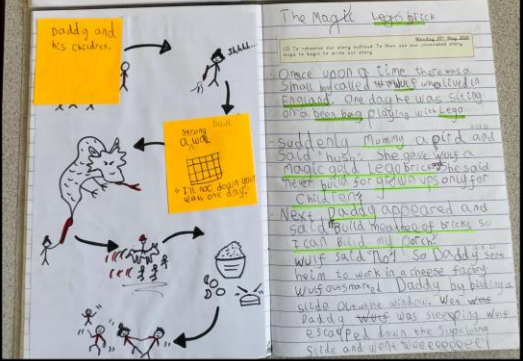 Daddy and
his Children
Shhhh...
strong
build
a wall
"I'll not dogin your
wall one day."
The Magic Legobrick
LO To rehearse our story outlines To then use our innovated story
maps to begin to write our story
Once upon a time there was a
Small boy called Wulf who lived in
England. One day he was siting
on a bean bag playing with Lego
Suddenly Mummy apird and
said "hush" She gave Wulf a
magic gold legobrick. She said
never build for grownups only for
Children
Next Daddy appeared and
said "Build me of bricks so
I can biuld my Porch"
Wulf said "No! So Daddy
heim to work in a cheese factry
Wulf Daddy by
slide out the window. Wen
Daddy was sweeping Wulf
escapped down the
slide and went weeeeeeee!